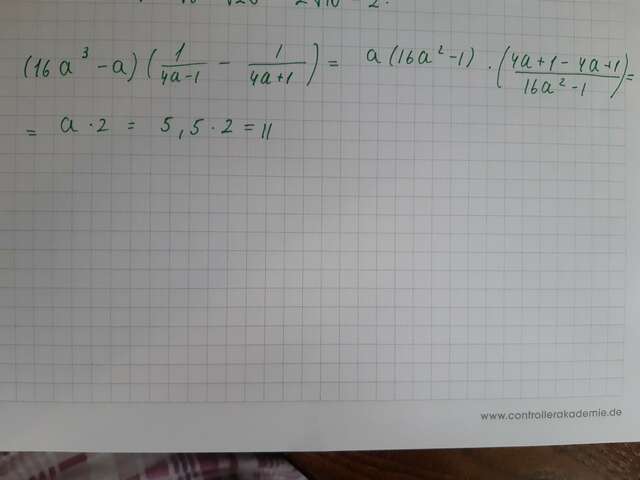 (16a³ - a) (1/(4a-1) - 1/(4a+1)) = a(16a² - 1) · ((4a+1-4a+1)/(16a² - 1)) =
= a · 2 = 5,5 · 2 = 11
www.controllerakademie.de